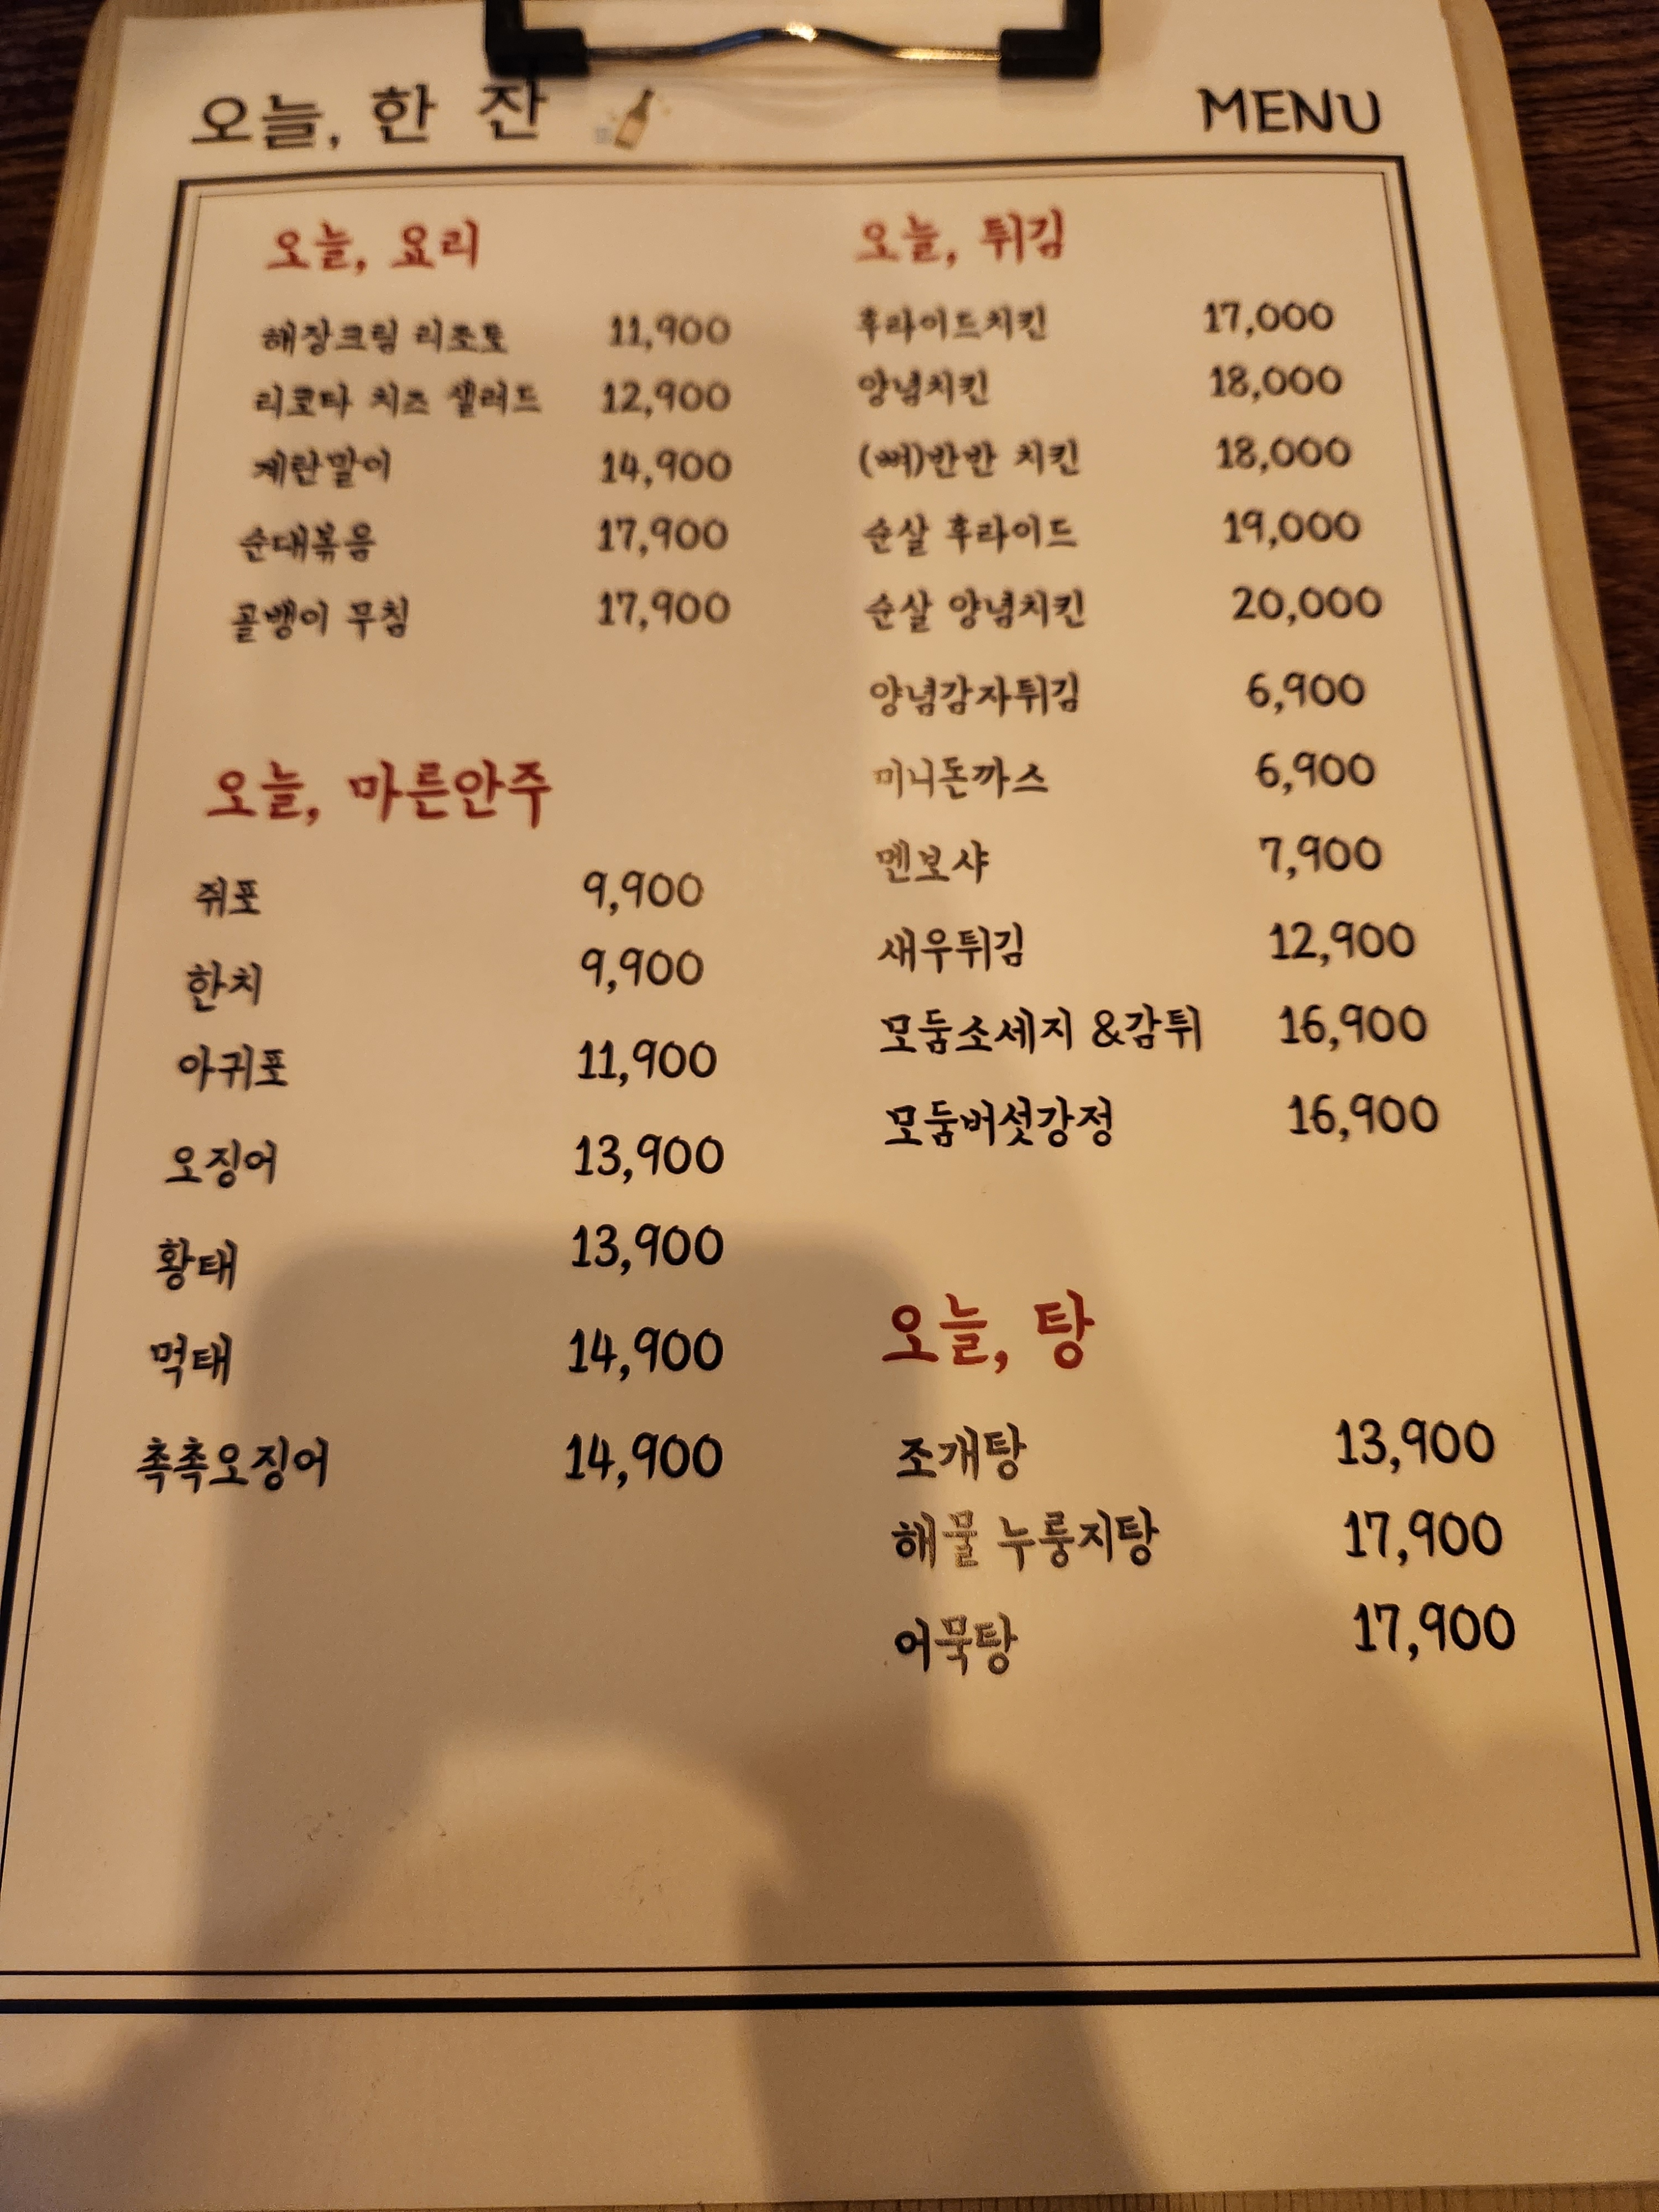 오늘, 한 잔
MENU
오늘, 요리
해장크림 리조또 11,900
리코타 치즈 샐러드 12,900
계란말이 14,900
순대볶음 17,900
골뱅이 무침 17,900
오늘, 마른안주
쥐포 9,900
한치 9,900
아귀포 11,900
오징어 13,900
황태 13,900
먹태 14,900
촉촉오징어 14,900
오늘, 튀김
후라이드치킨 17,000
양념치킨 18,000
(뼈)반반 치킨 18,000
순살 후라이드 19,000
순살 양념치킨 20,000
양념감자튀김 6,900
미니돈까스 6,900
멘보샤 7,900
새우튀김 12,900
모둠소세지 &감튀 16,900
모둠버섯강정 16,900
오늘, 탕
조개탕 13,900
해물 누룽지탕 17,900
어묵탕 17,900